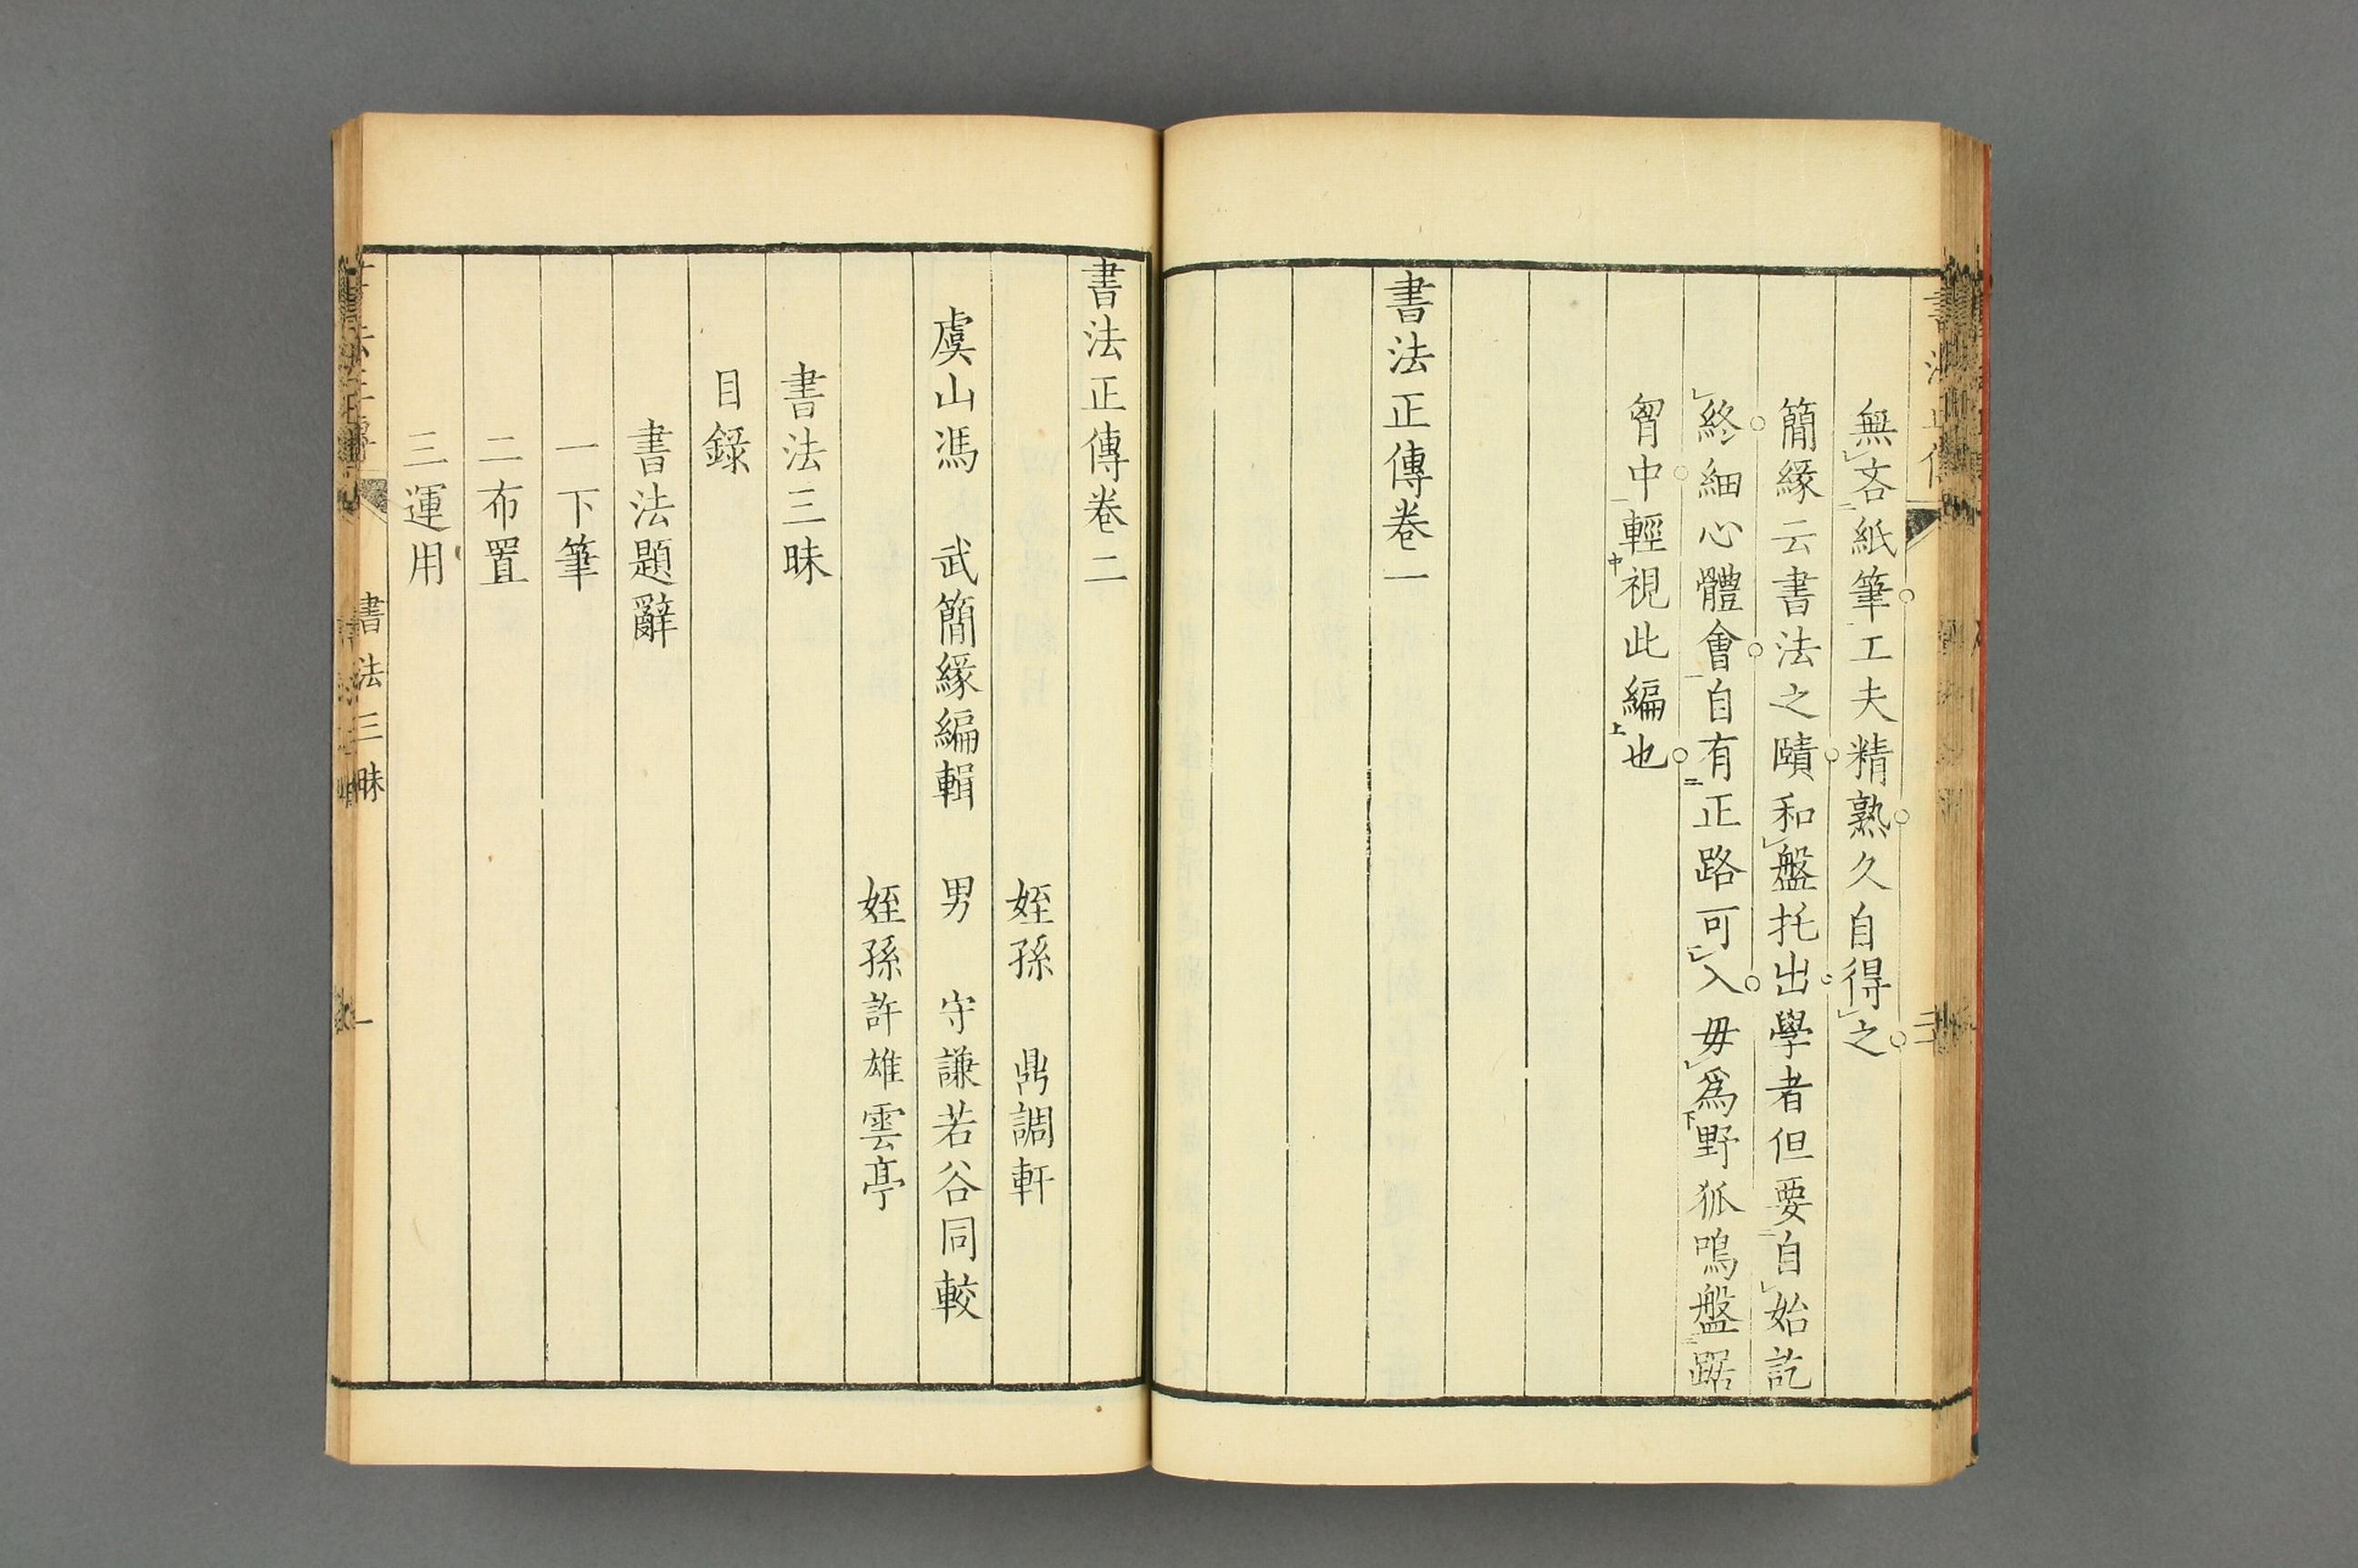 無吝紙筆工夫精熟久自得之
簡緣云書法之賾和盤托出學者但要自始訖
終細心體會自有正路可入毋爲野狐鳴盤踞
胷中輕視此編也
書法正傳卷一
書法正傳卷二
姪孫 鼎調軒
虞山馮 武簡緣編輯 男 守謙若谷同較
姪孫許雄雲亭
書法三昧
目錄
書法題辭
一下筆
二布置
三運用
書法三昧 一